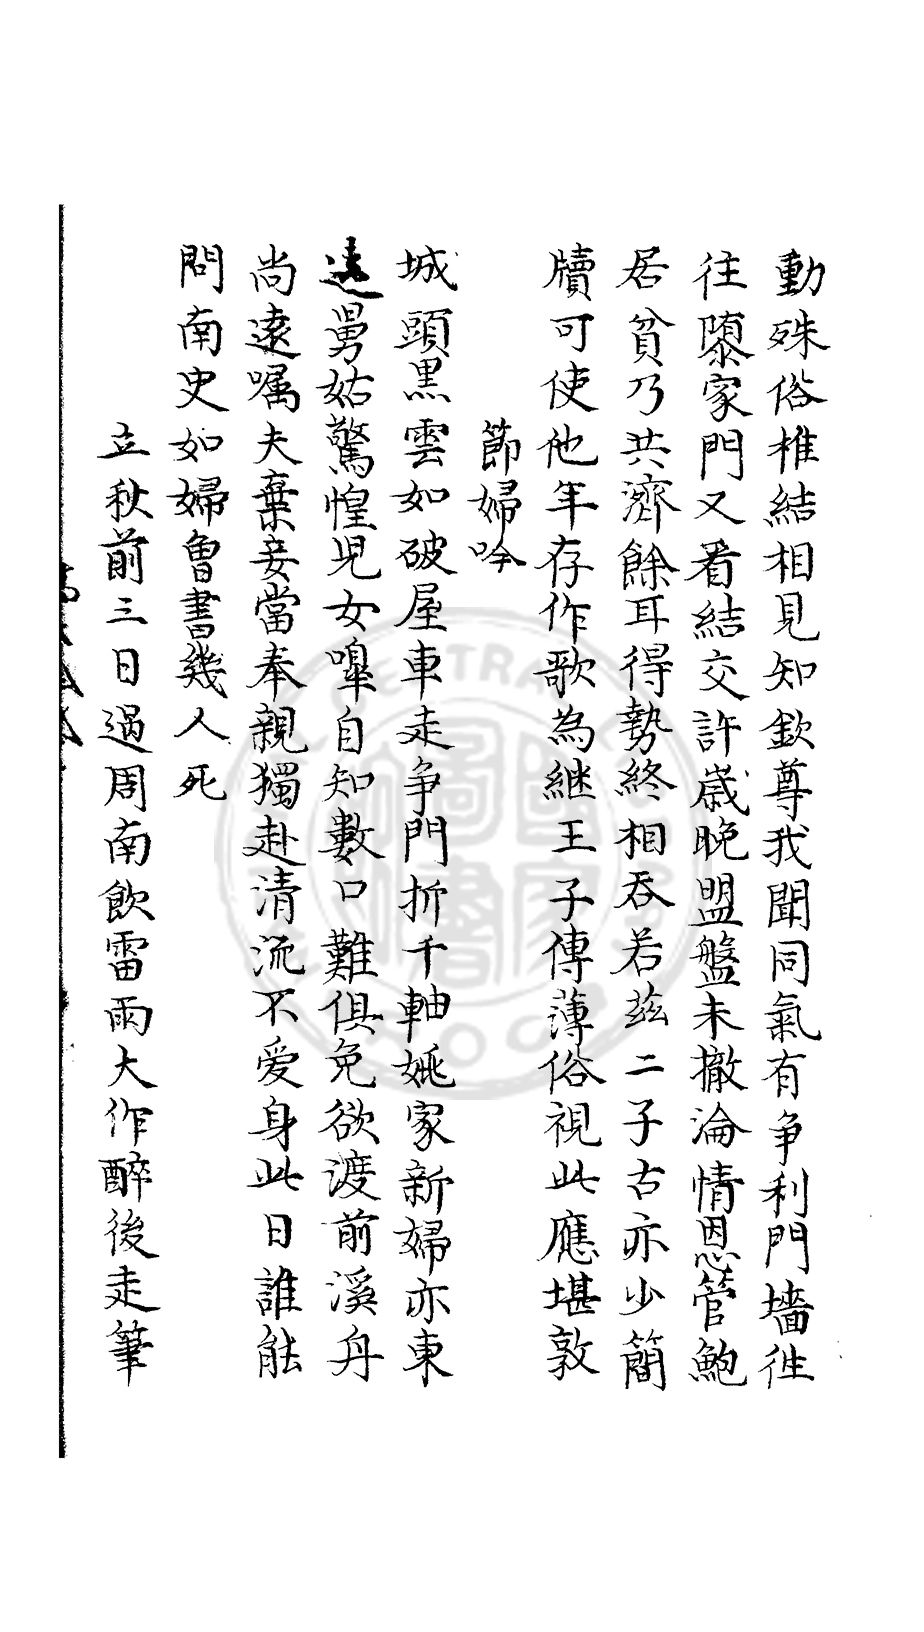 動殊俗椎結相見知欽尊我聞同氣有争利門墻徃
往隳家門又看結交許嵗晚盟盤未撤淪情恩管鮑
居貧乃共濟餘耳得勢終相吞若兹二子古亦少簡
牘可使他年存作歌為継王子傳薄俗視此應堪敦
節婦吟
城頭黒雲如破屋車走争門折千軸姚家新婦亦東
迯舅姑驚惶児女嘷自知數口難俱免欲渡前溪舟
尚遠嘱夫棄妾當奉親獨赴清流不爱身此日誰能
問南史如婦魯書幾人死
立秋前三日過周南飲雷雨大作醉後走筆